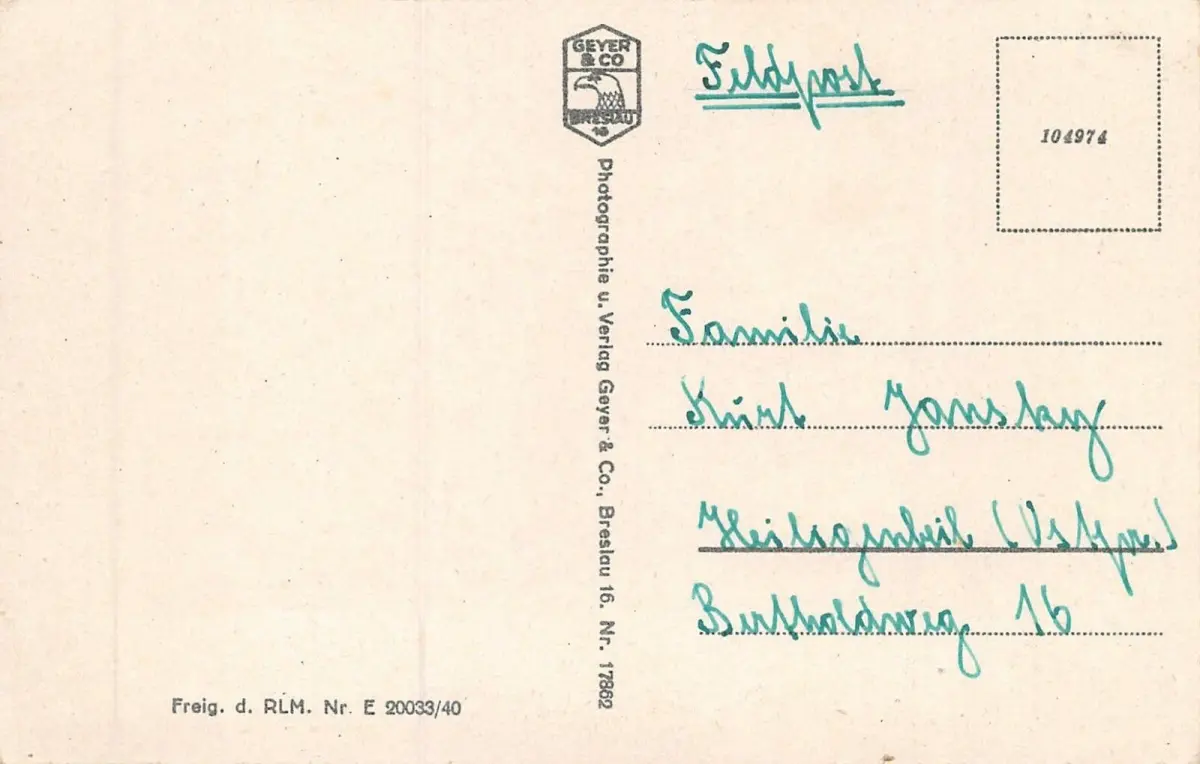 GEYER
& CO
BRESLAU
16
Photographie u. Verlag Geyer & Co., Breslau 16. Nr. 17862
Freig. d. RLM. Nr. E 20033/40
Feldpost
104974
Familie
Kurt Jansky
Heiligenbeil (Ostpr.)
Bertholdweg 16